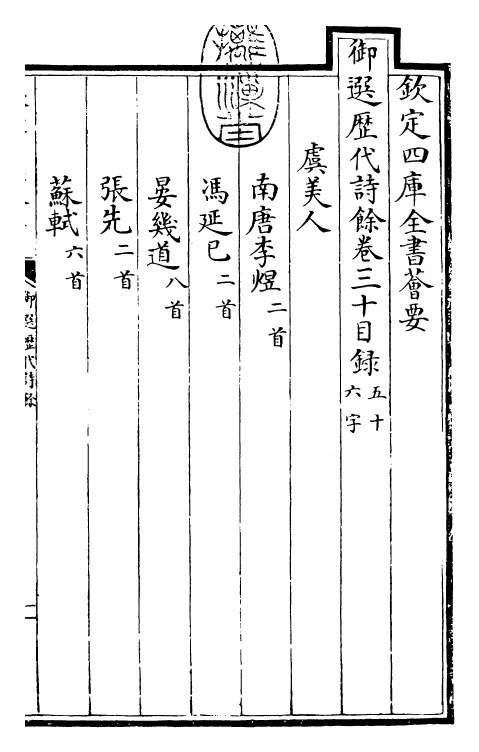 欽定四庫全書薈要
御選歴代詩餘卷三十目録 五十六字
虞美人
南唐李煜 二首
馮延巳 二首
晏幾道 八首
張先 二首
蘇軾 六首
御選歴代詩餘